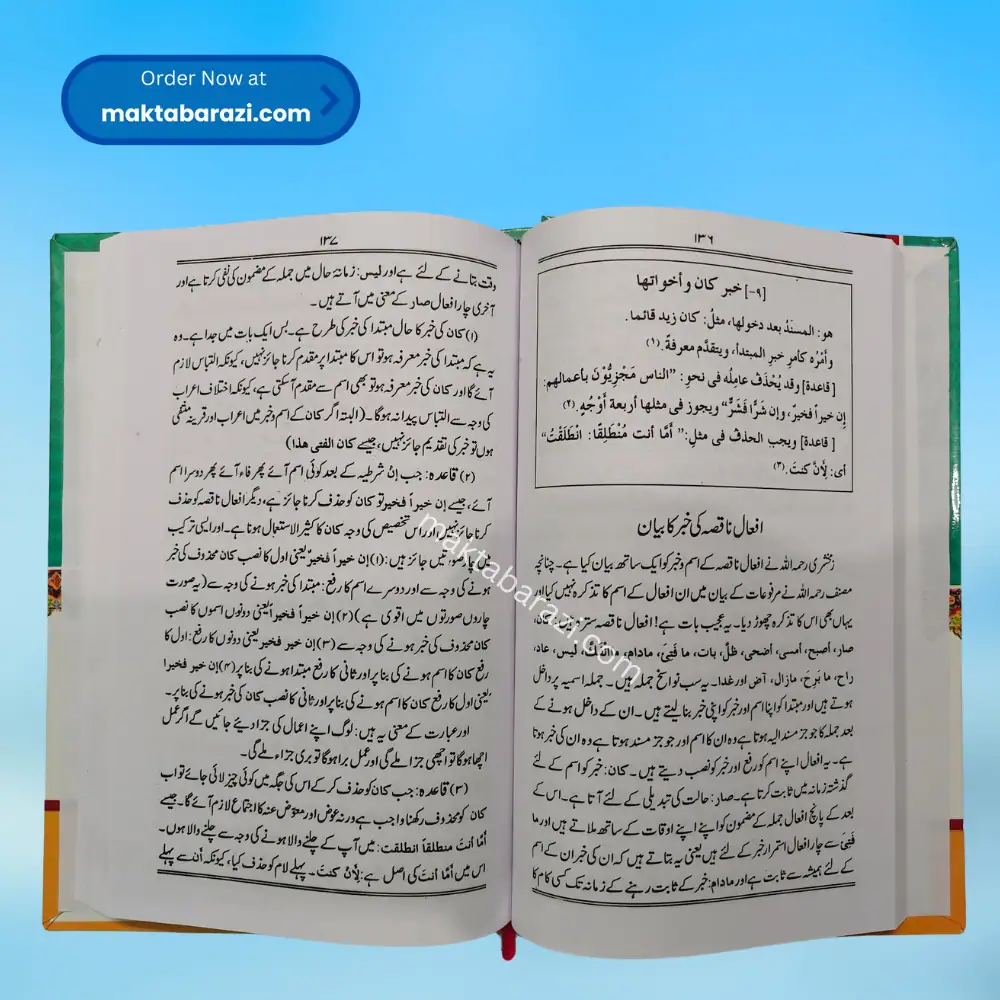 Order Now at
maktabarazi.com
١٣٦
[٩-] خبر كان وأخواتها
هو: المسندُ بعد دخولها، مثلُ: كان زيد قائما.
وأَمْرُه كأمرِ خبرِ المبتدأ، ويتقدَّم معرفةً. (١)
[قاعدة] وقد يُحْذَفُ عامِلُه فى نحوِ: "الناس مَجْزِيُّوْنَ بأعمالهم:
إن خيراً فخيرٌ، وإن شَرًّا فَشَرٌّ" ويجوز فى مثلها أربعة أَوْجُهٍ. (٢)
[قاعدة] ويجب الحذف فى مثلِ: "أَمَّا أنت مُنْطَلِقًا: انْطَلَقْتُ"
أى: لِأَنْ كنتَ. (٣)
افعال ناقصہ کی خبر کا بیان
زمخشری رحمہ اللہ نے افعال ناقصہ کے اسم و خبر کو ایک ساتھ بیان کیا ہے۔ چنانچہ
مصنف رحمہ اللہ نے مرفوعات کے بیان میں ان افعال کے اسم کا تذکرہ نہیں کیا اور
یہاں بھی اس کا تذکرہ چھوڑ دیا۔ یہ عجیب بات ہے! افعال ناقصہ سترہ ہیں: کان،
صار، أصبح، أمسى، أضحى، ظلَّ، بات، ما فَتِئَ، مادام، ماانفكَّ، ليس، عاد،
راح، ما بَرِحَ، مازال، آض اور غدا۔ یہ سب نواسخ جملہ ہیں۔ جملہ اسمیہ پر داخل
ہوتے ہیں اور مبتدا کو اپنا اسم اور خبر کو اپنی خبر بنا لیتے ہیں۔ ان کے داخل ہونے کے
بعد جملہ کا جو جز مسند الیہ ہوتا ہے وہ ان کا اسم اور جو جز مسند ہوتا ہے وہ ان کی خبر ہوتا
ہے۔ یہ افعال اپنے اسم کو رفع اور خبر کو نصب دیتے ہیں۔ کان: خبر کو اسم کے لئے
گذشتہ زمانہ میں ثابت کرتا ہے۔ صار: حالت کی تبدیلی کے لئے آتا ہے۔ اس کے
بعد کے پانچ افعال جملہ کے مضمون کو اپنے اپنے اوقات کے ساتھ ملاتے ہیں اور ما
فَتِئَ سے چار افعال استمرار خبر کے لئے ہیں یعنی یہ بتاتے ہیں کہ ان کی خبر ان کے اسم
کے لئے ہمیشہ سے ثابت ہے اور مادام: خبر کے ثابت رہنے کے زمانہ تک کسی کام کا
١٣٧
وقت بتانے کے لئے ہے اور لیس: زمانۂ حال میں جملہ کے مضمون کی نفی کرتا ہے اور
آخری چار افعال صار کے معنی میں آتے ہیں۔
(١) کان کی خبر کا حال مبتدا کی خبر کی طرح ہے۔ بس ایک بات میں جدا ہے۔ وہ
یہ ہے کہ مبتدا کی خبر معرفہ ہو تو اس کا مبتدا پر مقدم کرنا جائز نہیں، کیونکہ التباس لازم
آئے گا اور کان کی خبر معرفہ ہو تو بھی اسم سے مقدم آسکتی ہے، کیونکہ اختلاف اعراب
کی وجہ سے التباس پیدا نہ ہوگا۔ (البتہ اگر کان کے اسم و خبر میں اعراب اور قرینہ منتفی
ہوں تو خبر کی تقدیم جائز نہیں، جیسے كان الفتى هذا)
(٢) قاعدہ: جب إنْ شرطیہ کے بعد کوئی اسم آئے پھر فاء آئے پھر دوسرا اسم
آئے، جیسے إن خيراً فخير تو کان کو حذف کرنا جائز ہے، دیگر افعال ناقصہ کو حذف
کرنا جائز نہیں اور اس تخصیص کی وجہ کان کا کثیر الاستعمال ہونا ہے۔ اور ایسی ترکیب
میں چار صورتیں جائز ہیں: (١) إن خيراً فخيرٌ یعنی اول کا نصب کان محذوف کی خبر
ہونے کی وجہ سے اور دوسرے اسم کا رفع: مبتدا کی خبر ہونے کی وجہ سے (یہ صورت
چاروں صورتوں میں اقوی ہے) (٢) إن خيراً فخيراً یعنی دونوں اسموں کا نصب
کان محذوف کی خبر ہونے کی وجہ سے (٣) إن خير فخير یعنی دونوں کا رفع: اول کا
رفع کان کا اسم ہونے کی بنا پر اور ثانی کا رفع مبتدا ہونے کی بنا پر (٤) إن خير فخيرا
یعنی اول کا رفع کان کا اسم ہونے کی بنا پر اور ثانی کا نصب کان کی خبر ہونے کی بنا پر۔
اور عبارت کے معنی یہ ہیں: لوگ اپنے اعمال کی جزا دیئے جائیں گے اگر عمل
اچھا ہوگا تو اچھی جزا ملے گی اور عمل برا ہوگا تو بری جزاء ملے گی۔
(٣) قاعدہ: جب کان کو حذف کر کے اس کی جگہ میں کوئی چیز لائی جائے تو اب
کان کو محذوف رکھنا واجب ہے ورنہ عوض اور معوَّض عنہ کا اجتماع لازم آئے گا۔ جیسے
أمَّا أنتَ منطلقاً انطلقت: میں آپ کے چلنے والا ہونے کی وجہ سے چلنے والا ہوں۔
اس میں أمَّا أنتَ کی اصل ہے: لِأَنْ كنتَ۔ پہلے لام کو حذف کیا، کیونکہ أن سے پہلے
maktabarazi.com